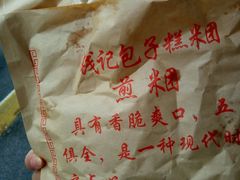 浅记包子糕米团
煎米团
具有香脆爽口，五
俱全，是一种现代时